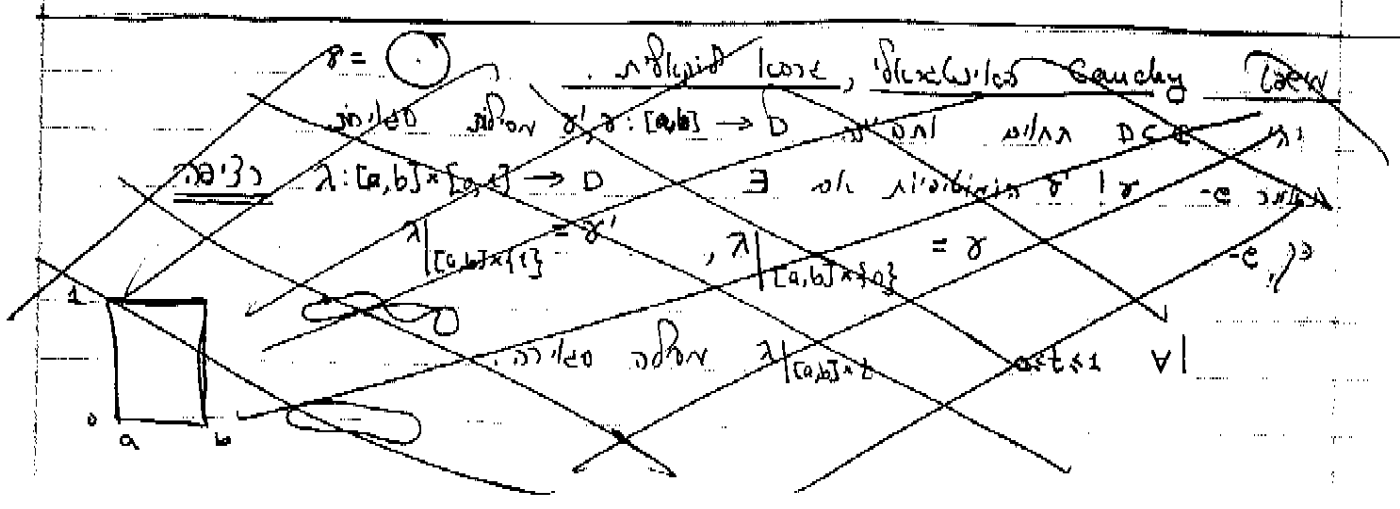 משפט Cauchy האינטגרלי, גרסא הומוטופית. γ =
יהי D⊂ℂ תחום ותהיינה γ, γ': [a,b] → D מסילות סגורות.
נאמר ש- γ ו γ' הומוטופיות אם ∃ λ: [a,b]×[0,1] → D רציפה
כך ש- λ|[a,b]×{0} = γ , λ|[a,b]×{1} = γ'
ו ∀ 0≤t≤1 λ|[a,b]×t מסילה סגורה.
1
0
a b